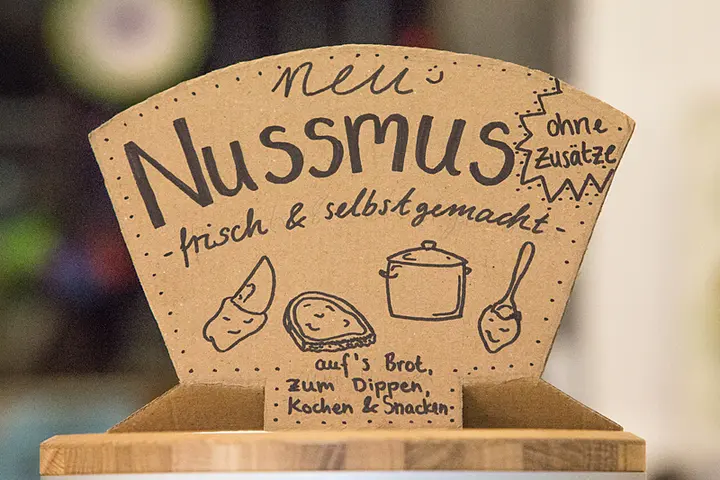 neu:
Nussmus
ohne
Zusätze
-frisch & selbstgemacht-
auf's Brot,
zum Dippen,
Kochen & Snacken